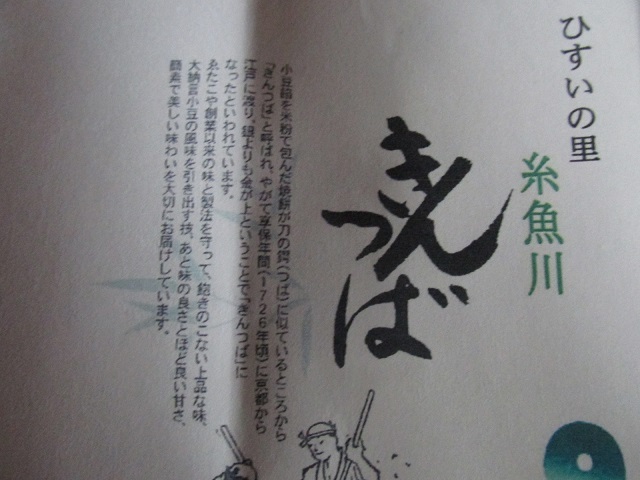 ひすいの里
糸魚川
きんつば
小豆餡を米粉で包んだ焼餅が刀の鍔(つば)に似ているところから
「ぎんつば」と呼ばれ、やがて享保年間(1726年頃)に京都から
江戸に渡り、銀よりも金が上ということで「きんつば」に
なったといわれています。
ゑたこや創業以来の味と製法を守って、飽きのこない上品な味、
大納言小豆の風味を引き出す技、あと味の良さとほど良い甘さ、
簡素で美しい味わいを大切にお届けしています。